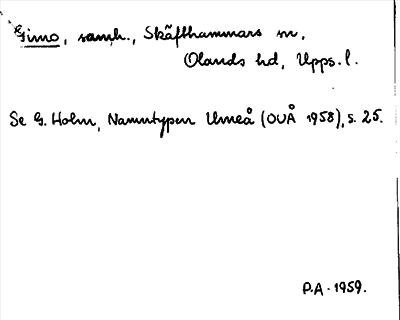 Gimo, samh., Skäfthammars sn,
Olands hd, Upps. l.
Se G. Holm, Namntypen Umeå (OUÅ 1958), s. 25.
P.A. 1959.